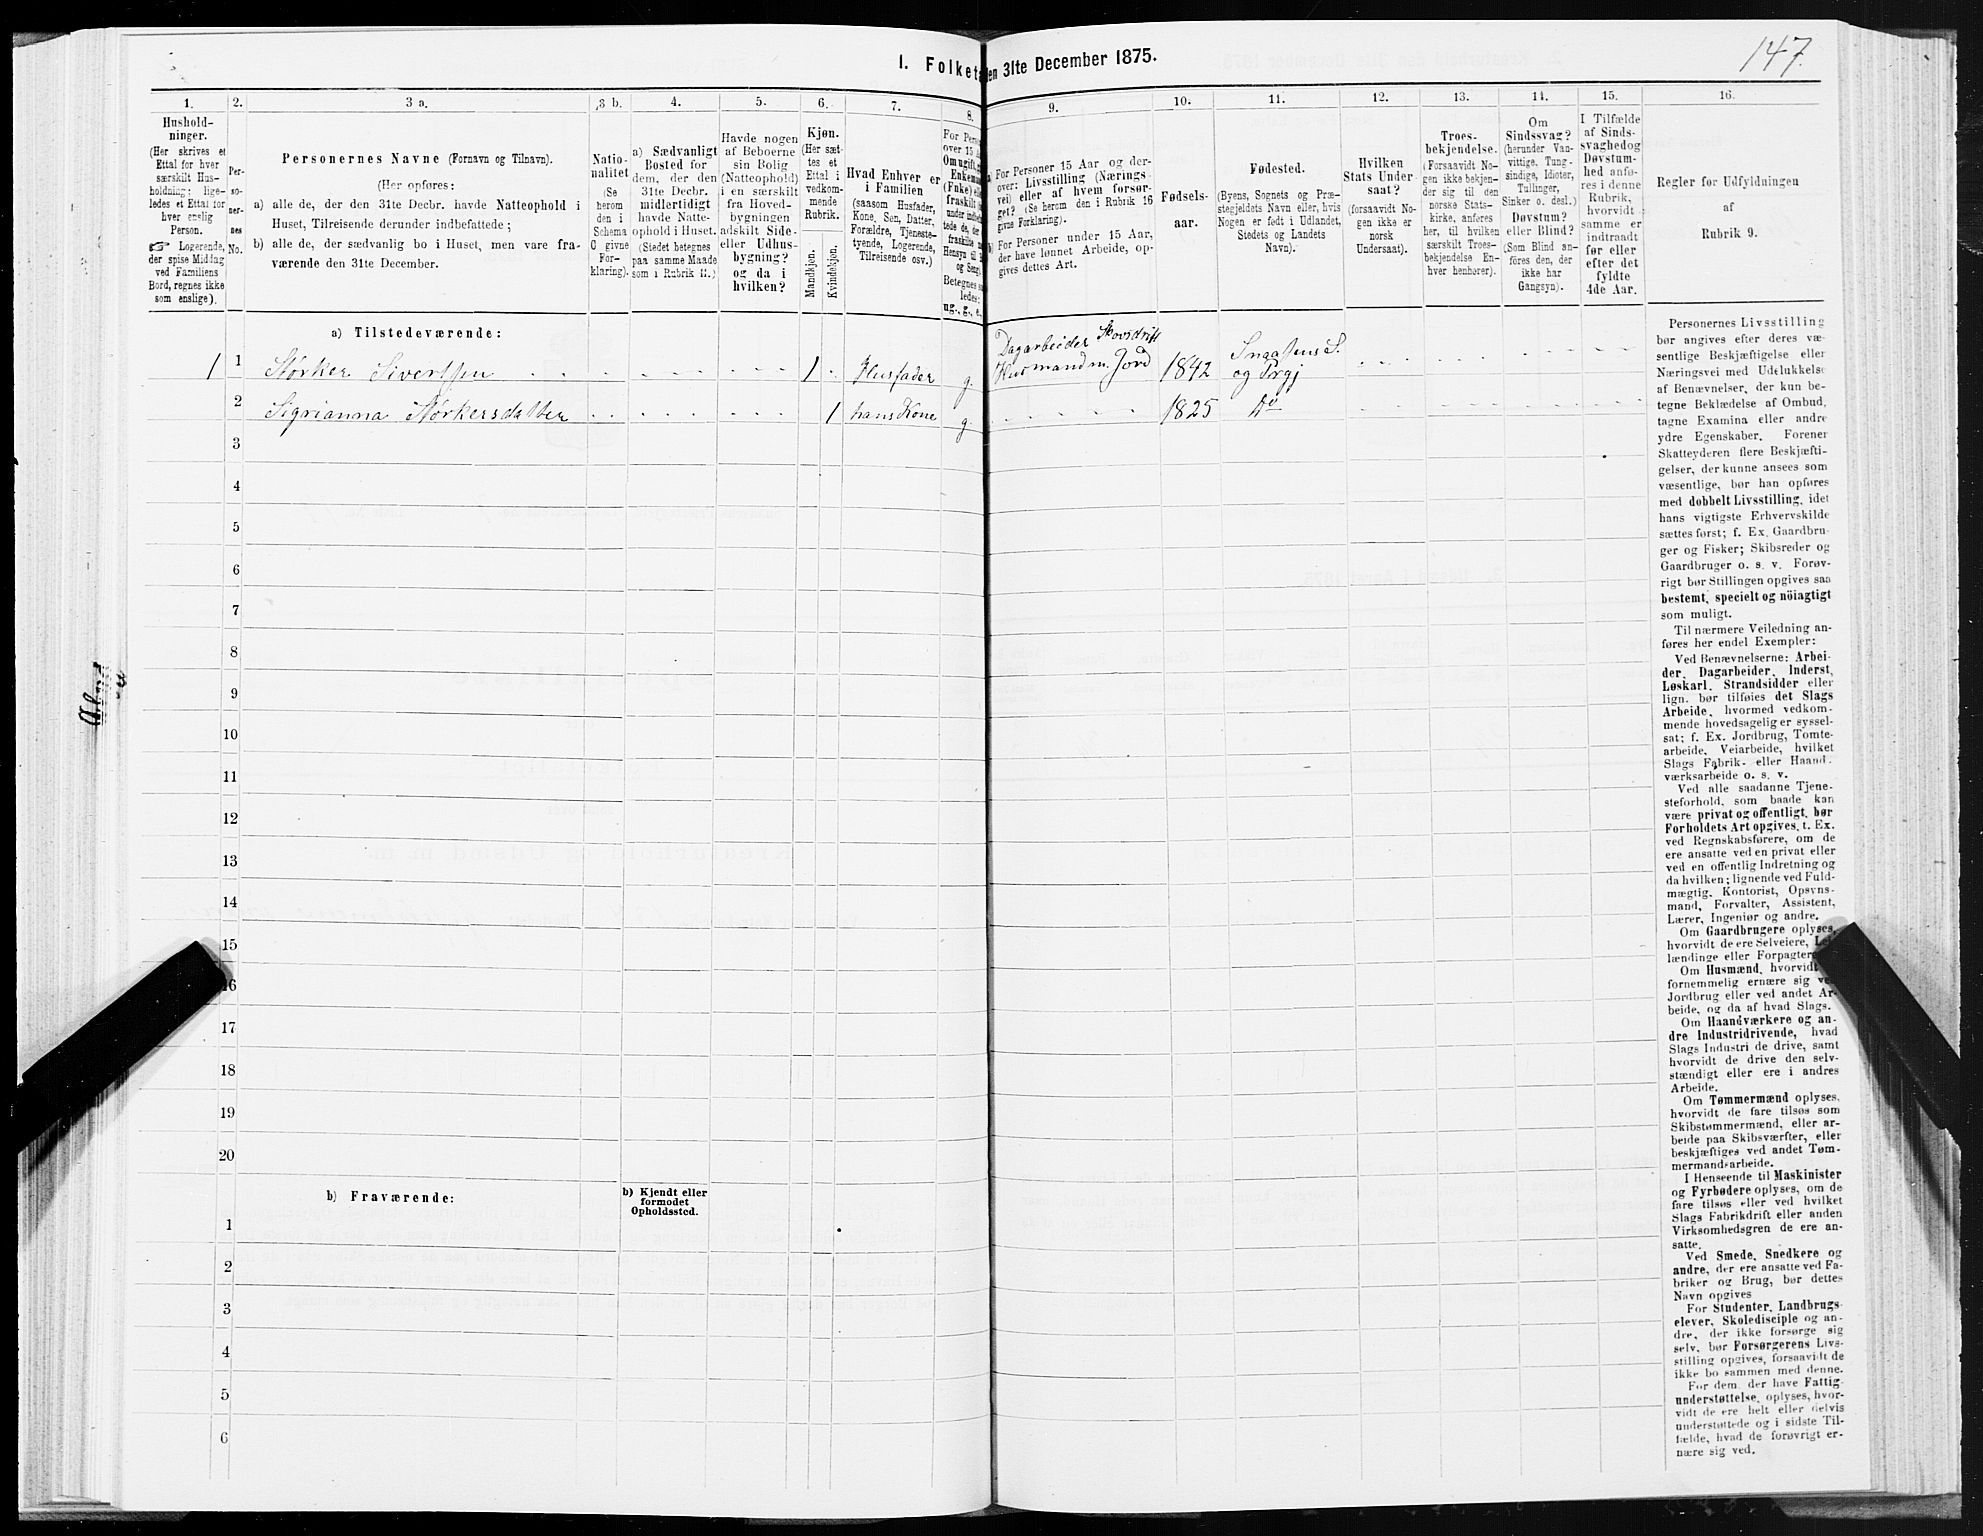 147.
1. Folketæ
den 31te December 1875.
1.
2.
3 a.
3 b.
4.
5.
6.
7.
8.
9.
10.
11.
12.
13.
14.
15.
16.
Hushold-
ninger.
(Her skrives et
Ettal for hver
særskilt Hus-
holdning; lige-
ledes et Ettal for
hver enslig
Person.
☞ Logerende,
der spise Middag
ved Familiens
Bord, regnes ikke
som enslige).
Per-
so-
ner-
nes
No.
Personernes Navne (Fornavn og Tilnavn).
(Her opføres:
a) alle de, der den 31te Decbr. havde Natteophold i
Huset, Tilreisende derunder indbefattede;
b) alle de, der sædvanlig bo i Huset, men vare fra-
værende den 31te December.
Natio-
nalitet
(Se
herom
den i
Schema
C givne
For-
klaring).
a) Sædvanligt
Bosted for
dem, der den
31te Decbr.
midlertidigt
havde Natte-
ophold i Huset.
(Stedet betegnes
paa samme Maade
som i Rubrik 11.)
Havde nogen
af Beboerne
sin Bolig
(Natteophold)
i en særskilt
fra Hoved-
bygningen
adskilt Side-
eller Udhus-
bygning?
og da i
hvilken?
Kjøn.
(Her sæt-
tes et
Ettal i
vedkom-
mende
Rubrik.
Mandkjøn.
Kvindekjøn.
Hvad Enhver er
i Familien
(saasom Husfader,
Kone, Søn, Datter,
Forældre, Tjeneste-
tyende, Logerende,
Tilreisende osv.)
For Perso
over 15 Aa
Om ugift,
Enkema
(Enke) el
fraskilt
under indb
tede de, de
fraskilte
Hensyn til
og Seng
Betegnes s
ledes:
ug., g., e.
a) For Personer 15 Aar og der-
over: Livsstilling (Nærings-
vei) eller af hvem forsør-
get? (Se herom den i Rubrik 16
givne Forklaring).
b) For Personer under 15 Aar,
der have lønnet Arbeide, op-
gives dettes Art.
Fødsels-
aar.
Fødested.
(Byens, Sognets og Præ-
stegjeldets Navn eller, hvis
Nogen er født i Udlandet,
Stedets og Landets
Navn).
Hvilken
Stats Under-
saat?
(forsaavidt No-
gen ikke er
norsk
Undersaat).
Troes-
bekjendelse.
(Forsaavidt No-
gen ikke bekjen-
der sig til den
norske Stats-
kirke, anføres
her, til hvilken
særskilt Troes-
bekjendelse En-
hver henhører).
Om
Sindssvag?
(herunder Van-
vittige, Tung-
sindige, Idioter,
Tullinger,
Sinker o. desl.)
Døvstum?
eller Blind?
(Som Blind an-
føres den, der
ikke har
Gangsyn).
I Tilfælde
af Sinds-
svaghed og
Døvstum-
hed anfø-
res i denne
Rubrik,
hvorvidt
samme er
indtraadt
før eller
efter det
fyldte
4de Aar.
Regler før Udfyldningen
af
Rubrik 9.
a) Tilstedeværende:
1 1 Størker Sivertsen 1 Husfader g. Dagarbeider Skovdrift Husmand m. Jord 1842 Snaasens S. og Prgj
2 Sigrianna Størkersdatter 1 hans Kone g. 1825 do
3
4
5
6
7
8
9
10
11
12
13
14
15
16
17
18
19
20
b) Fraværende:
b) Kjendt eller
formodet
Opholdssted.
1
2
3
4
5
6
Personernes Livsstilling
bør angives efter deres væ-
sentlige Beskjæftigelse eller
Næringsvei med Udelukkelse
af Benævnelser, der kun be-
tegne Beklædelse af Ombud,
tagne Examina eller andre
ydre Egenskaber. Forener
Skatteyderen flere Beskjæfti-
gelser, der kunne ansees som
væsentlige, bør han opføres
med dobbelt Livsstilling, idet
hans vigtigste Erhvervskilde
sættes først; f. Ex. Gaardbru-
ger og Fisker; Skibsreder og
Gaardbruger o. s. v. Forøv-
rigt bør Stillingen opgives saa
bestemt, specielt og nöiagtigt
som muligt.
Til nærmere Veiledning an-
føres her endel Exempler:
Ved Benævnelserne: Arbei-
der, Dagarbeider, Inderst,
Løskarl, Strandsidder eller
lign. bør tilføies det Slags
Arbeide, hvormed vedkom-
mende hovedsagelig er syssel-
sat; f. Ex. Jordbrug, Tomte-
arbeide, Veiarbeide, hvilket
Slags Fabrik- eller Haand-
værksarbeide o. s. v.
Ved alle saadanne Tjene-
steforhold, som baade kan
være privat og offentligt, bør
Forholdets Art opgives, t. Ex.
ved Regnskabsførere, om de
ere ansatte ved en privat eller
ved en offentlig Indretning og
da hvilken; lignende ved Fuld-
mægtig, Kontorist, Opsyns-
mand, Forvalter, Assistent,
Lærer, Ingeniør og andre.
Om Gaardbrugere oplyses,
hvorvidt de ere Selveiere, Lei-
lændinge eller Forpagtere.
Om Husmænd, hvorvidt
fornemmelig ernære sig ved
Jordbrug eller ved andet Ar-
beide, og da af hvad Slags.
Om Haandværkere og an-
dre Industridrivende, hvad
Slags Industri de drive, samt
hvorvidt de drive den selv-
stændigt eller ere i andres
Arbeide.
Om Tømmermænd oplyses,
hvorvidt de fare tilsøs som
Skibstømmermænd, eller ar-
beide paa Skibsværfter, eller
beskjæftiges ved andet Tøm-
mermandsarbeide.
I Henseende til Maskinister
og Fyrbødere oplyses, om de
fare tilsøs eller ved hvilket
Slags Fabrikdrift eller anden
Virksomhedsgren de ere an-
satte.
Ved Smede, Snedkere og
andre, der ere ansatte ved Fa-
briker og Brug, bør dettes
Navn opgives
For Studenter, Landbrugs-
elever, Skoledisciple og an-
dre, der ikke forsørge sig
selv, bør Forsørgerens Livs-
stilling opgives, forsaavidt de
ikke bo sammen med denne.
For dem, der have Fattig-
understøttelse, oplyses, hvor-
vidt de ere helt eller delvis
understøttede og i sidste Til-
fælde, hvad de forøvrigt er-
nære sig ved.